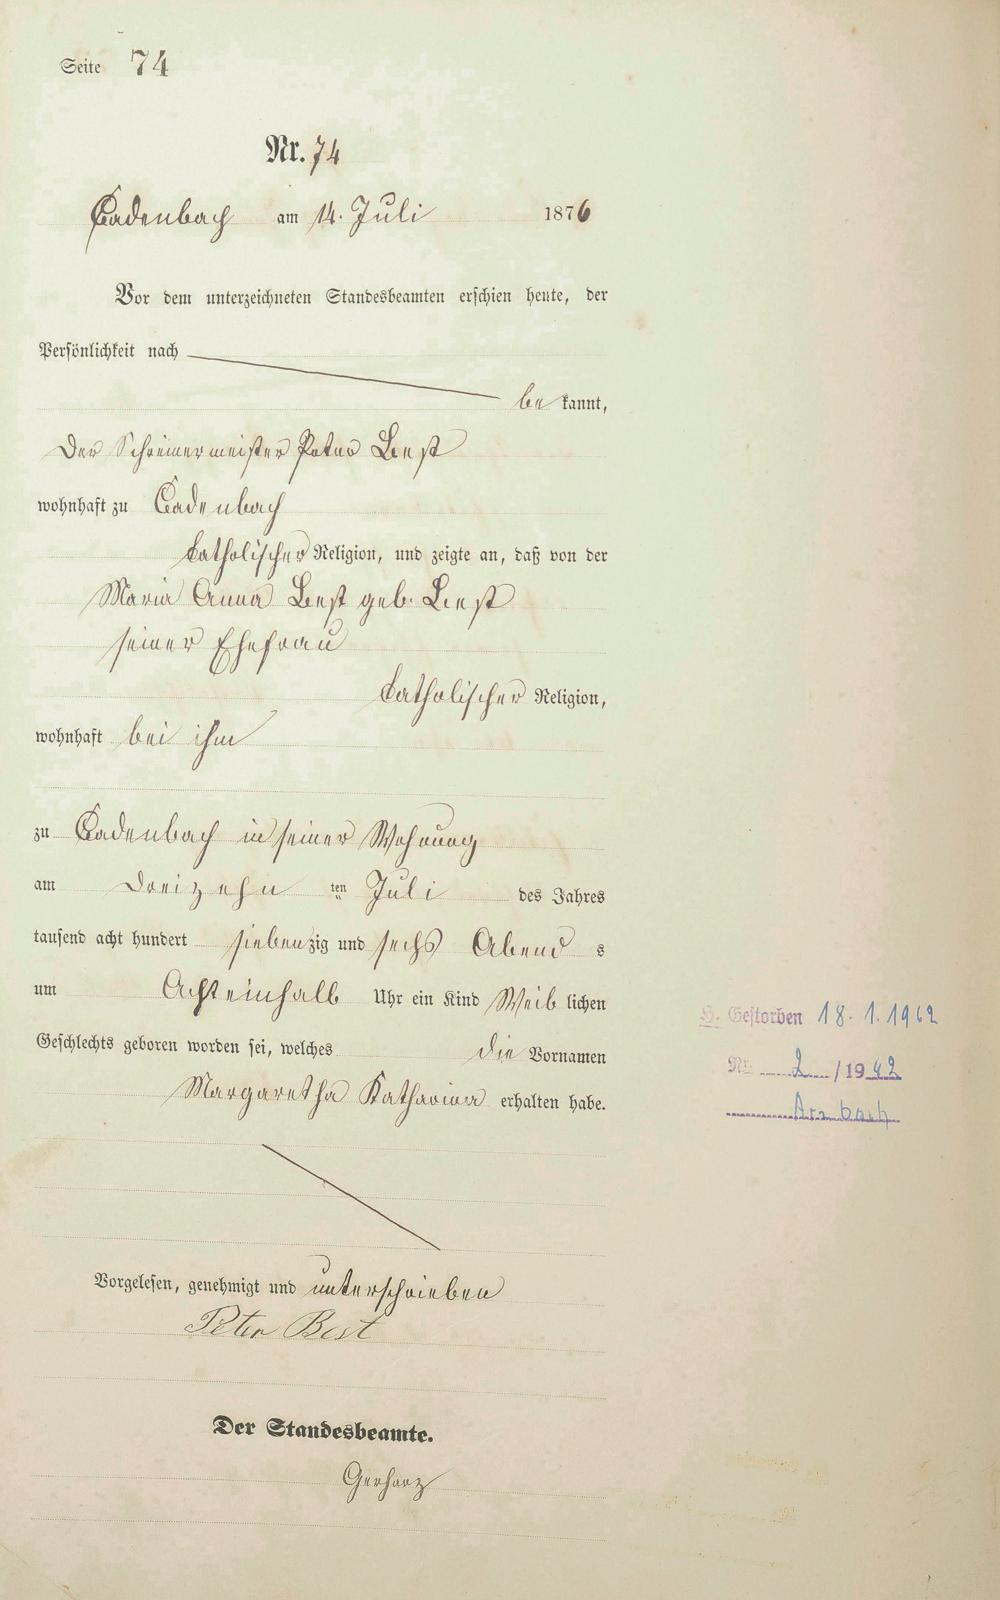 Seite 74
Nr. 74
Cadenbach am 14. Juli 1876
Vor dem unterzeichneten Standesbeamten erschien heute, der
Persönlichkeit nach
be kannt,
Der Schreinermeister Peter Best
wohnhaft zu Cadenbach
katholischer Religion, und zeigte an, daß von der
Maria Anna Best geb. Best
seiner Ehefrau
katholischer Religion,
wohnhaft bei ihm
zu Cadenbach in seiner Wohnung
am Dreizehn ten Juli des Jahres
tausend acht hundert siebenzig und sechs Abend s
um Achteinhalb Uhr ein Kind Weib lichen
Geschlechts geboren worden sei, welches die Vornamen
Margaretha Katharina erhalten habe.
Vorgelesen, genehmigt und unterschrieben
Peter Best
Der Standesbeamte.
Gerharz
H. Gestorben 18.1.1962
Nr. 2/1962
Arzbach